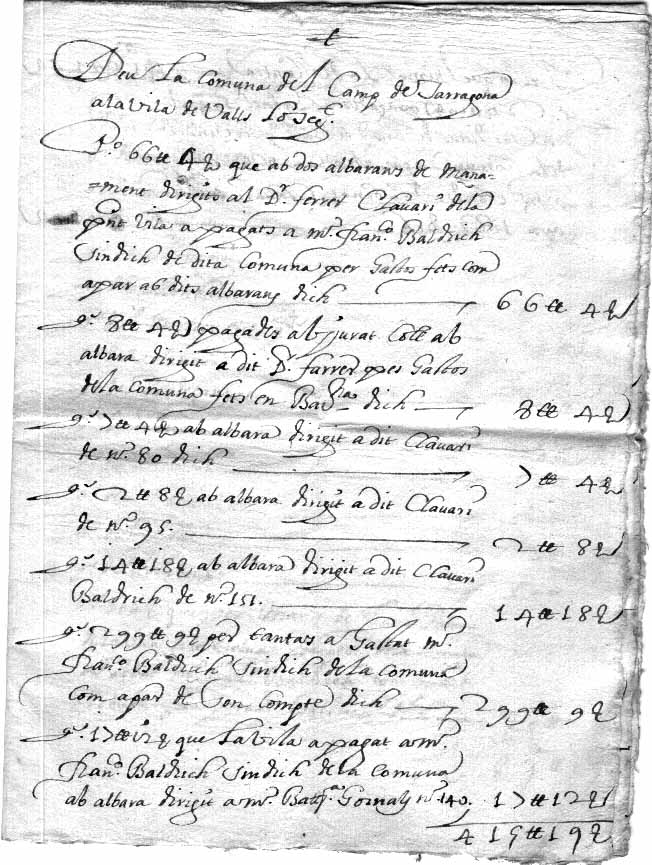 Deu La Comuna del Camp de Tarragona
a la vila de Valls Lo Seg.t
P.o 66 tt 4 ꝑ que ab dos albarans de Mana-
=ment dirigits al D.r ferrer Clavari de la
pnt Vila a pagats a m.o fran.o Baldrich
Sindich de dita Comuna per Gastos fets com
apar ab dits albarans dich 66 tt 4 ꝑ
g.o 8 tt 4 ꝑ pagades al jurat Coll ab
albara dirigit a dit D. farrer pes Gastos
de la Comuna fets en Bar.na dich 8 tt 4 ꝑ
g.o 7 tt 4 ꝑ ab albara dirigit a dit Clavari
de n.o 80 dich 7 tt 4 ꝑ
g.o 2 tt 8 ꝑ ab albara dirigit a dit Clavari
de n.o 95. 2 tt 8 ꝑ
g.o 14 tt 18 ꝑ ab albara dirigit a dit Clavari
Baldrich de n.o 151. 14 tt 18 ꝑ
g.o 299 tt 9 ꝑ per tantas a Gastat m.o
fran.o Baldrich Sindich de la Comuna
Com apar de Son Compte dich 299 tt 9 ꝑ
g.o 17 tt 12 ꝑ que La Vila a pagat a m.o
fran.o Baldrich Sindich de la Comuna
ab albara dirigit a m.o Bat.a n.o 140. 17 tt 12 ꝑ
415 tt 19 ꝑ